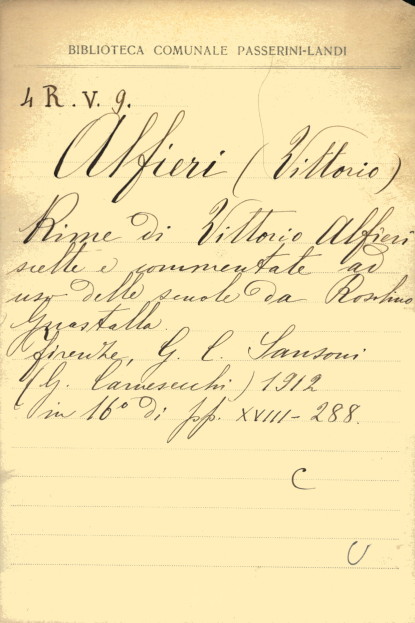 BIBLIOTECA COMUNALE PASSERINI-LANDI
4 R. V. 9.
Alfieri (Vittorio)
Rime di Vittorio Alfieri
scelte e commentate ad
uso delle scuole da Rosolino
Guastalla.
Firenze, G. C. Sansoni
(G. Carnesecchi) 1912
in 16° di pp. XVIII-288.
C
U